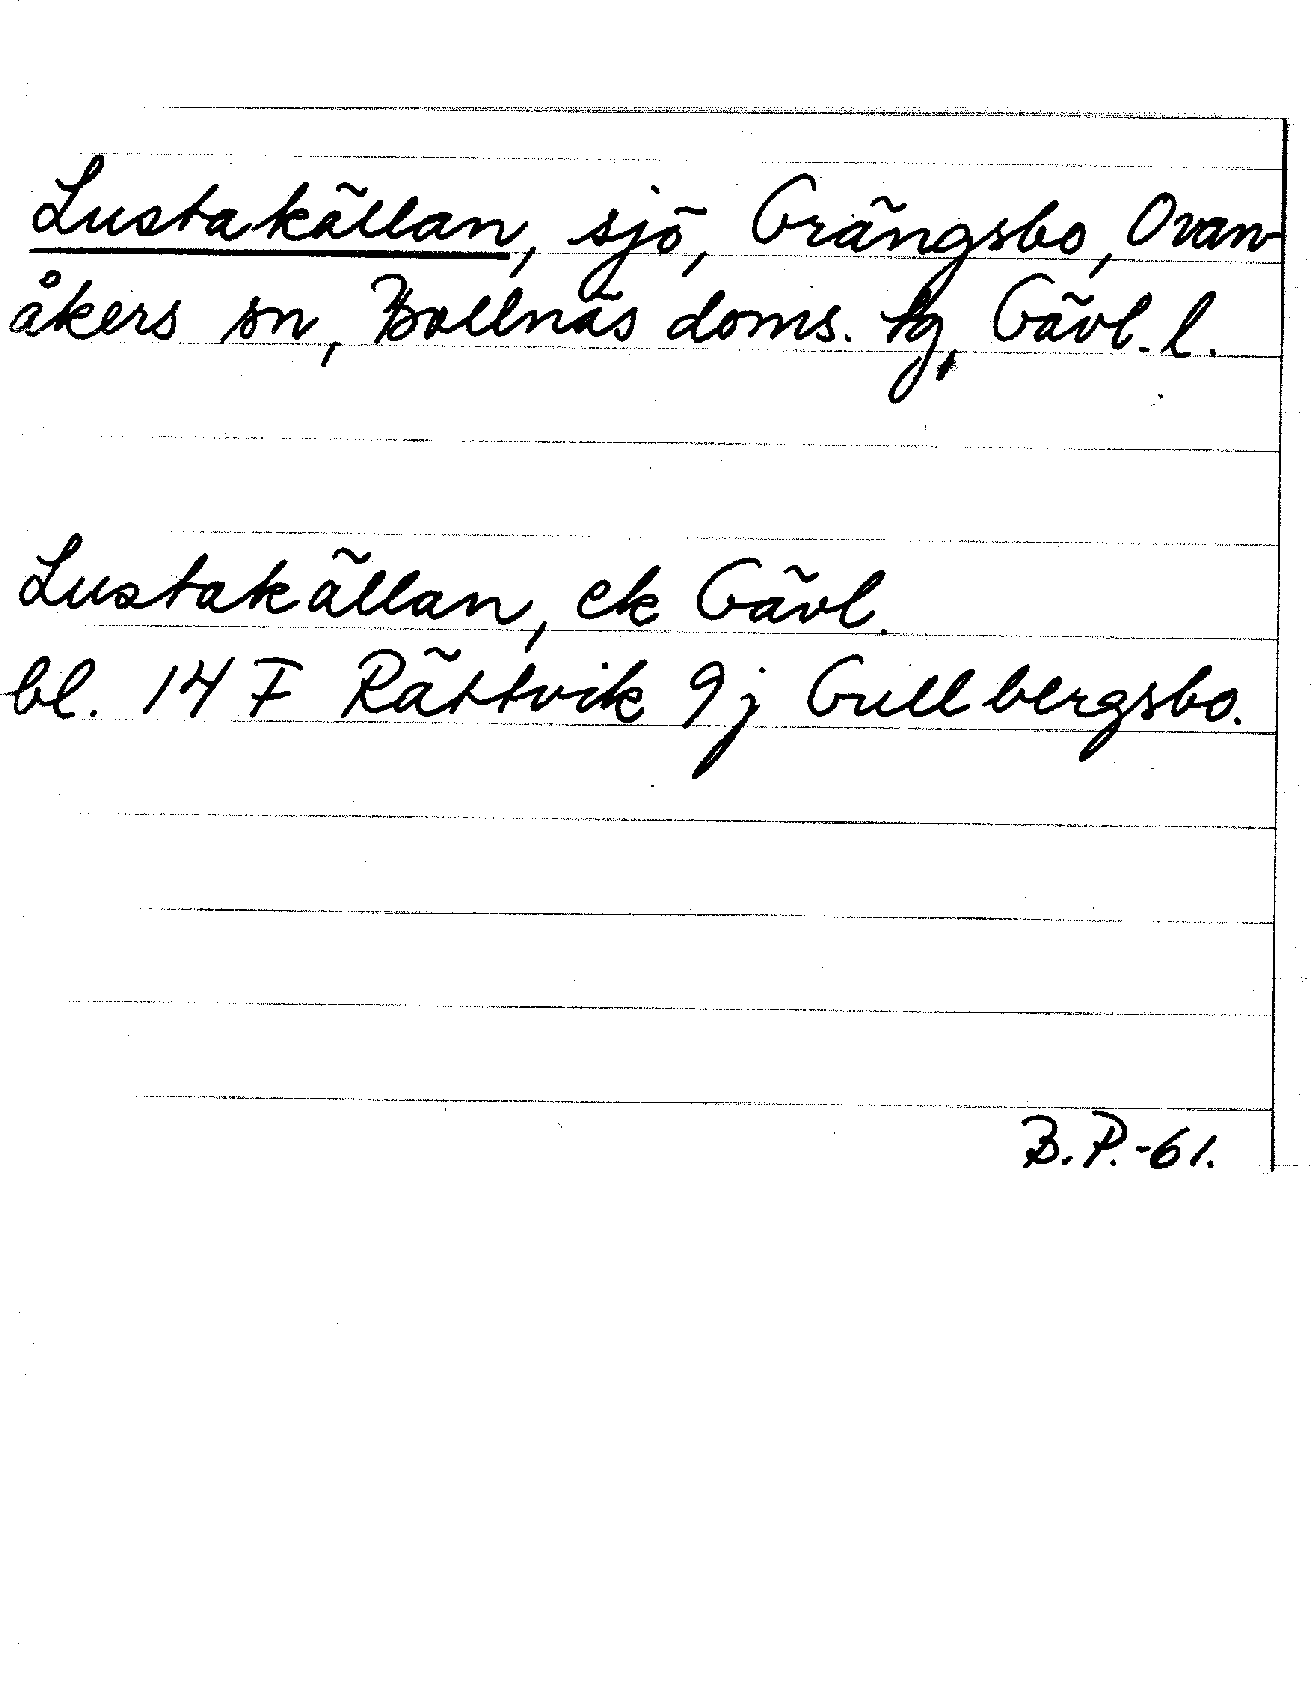 Lustakällan, sjö, Grängsbo, Ovan-
åkers sn, Bollnäs doms. tg, Gävl. l.
Lustakällan, ek Gävl.
bl. 14 F Rättvik 9j Gullbergsbo.
B.P.-61.